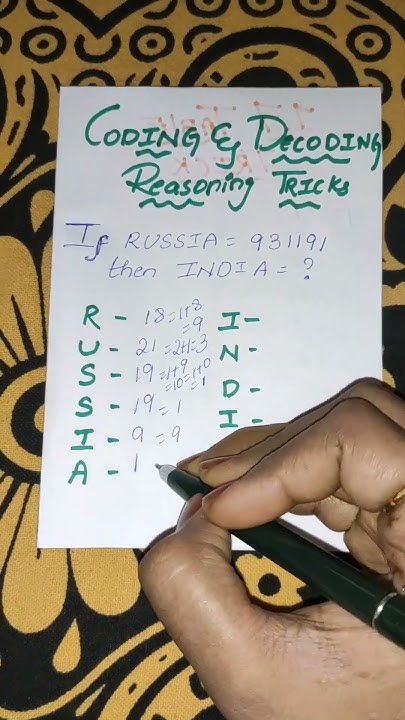 CODING & DECODING
Reasoning TRICKS
If RUSSIA = 931191
then INDIA = ?
R - 18 = 1+8
= 9
U - 21 = 2+1 = 3
S - 19 = 1+9
= 10 = 1+0
= 1
S - 19 = 1
I - 9 = 9
A - 1
I -
N -
D -
I -